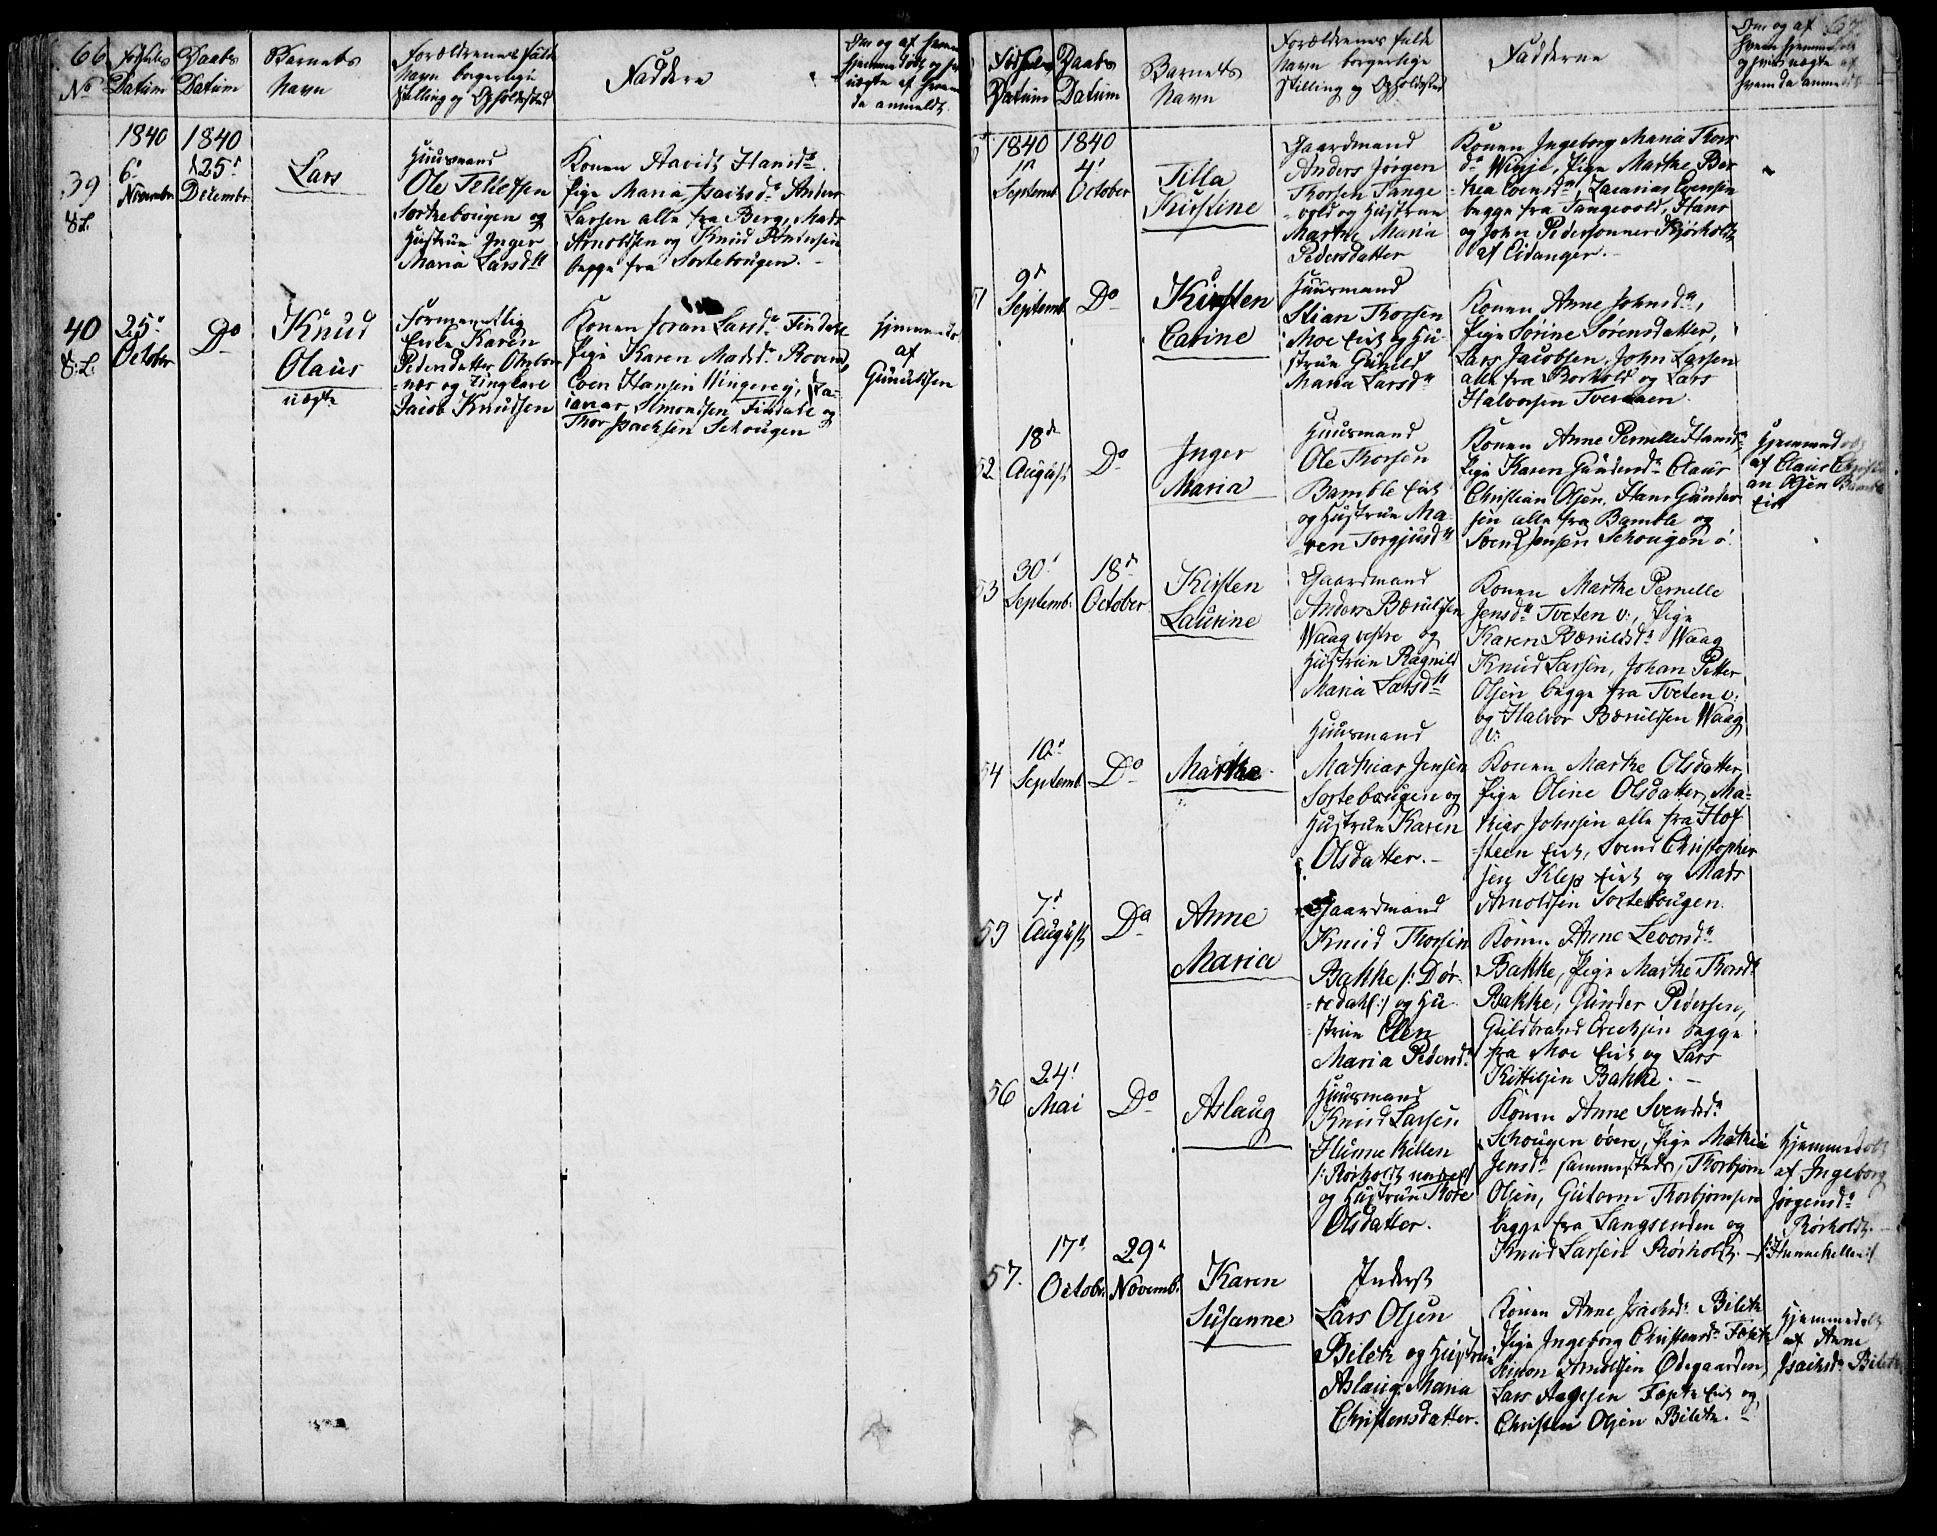 66
No
Fødsels
Datum
Daabs
Datum
Barnets
Navn
Forældrenes fulde
Navn borgerlige
Stilling og Opholdssted
Faddere
Om og af hvem
hjemmedøbt og hvis
uægte af hvem
da anmeldt
39
8.L.
1840
6te
Novembr
1840
25de
Decembr
Lars
Huusmand
Ole Tellefsen
Sortebougen og
Hustrue Inger
Maria Larsdtr
Konen Aavidt Hansdr
Pige Maria Isachsdr Anders
Larsen alle fra Berg, Mads
Arnoldsen og Knud
begge fra Sortebougen.
40
8.L.
25de
October
Do
Knud
Olaus
uægte
Formentlig
Enke Karen
Pedersdatter
og Ungkarl
Jacob Knudsen
Konen Joran Larsdr Findal
Pige Karen Madsdr
Even Hansen Vingerej, Za-
carias Simondsen Findal og
Thor Isachsen Schougen
Hjemmedøbt
af
Gunuldsen
67
Fødsels
Datum
Daabs
Datum
Barnets
Navn
Forældrenes fulde
Navn borgerlige
Stilling og Opholdssted
Fadderne
Om og af
hvem hjemmedøbt
og hvis uægte af
hvem da anmeldt
1840
1te
Septemb.
1840
4de
October
Tilla
Kirstine
Gaardmand
Anders Jørgen
Thorsen Tange-
vold og Hustrue
Marthe Maria
Pedersdatter
Konen Ingeborg Maria Thors
dr Winje, Pige Marthe Ber-
thea Evensdr, Zacarias Evensen
begge fra Tangevold, Hans
og John Pedersønner Kjørholt
af Eidanger.
51
9de
Septemb.
Do
Kirsten
Carine
Huusmand
Stian Thorsen
Moe Eiet og Hu-
strue Gunild
Maria Larsdtr
Konen Anne Johnsdr,
Pige Sørine Sørensdatter,
Lars Jacobsen, John Larsen
alle fra Rørhold og Lars
Halvorsen Tverdalen.
52
18de
August
Do
Inger
Maria
Huusmand
Ole Thorsen
Bamble Eiet
og Hustrue Ma-
ren Torgjusdtr
Konen Anne Pernelle Hansdr
Pige Karen Gundersdr Claus
Christian Olsen, Hans Gunder-
sen alle fra Bamble og
Svend Jensen Schougen ø.
Hjemmedøbt
af Claus Christi-
an Olsen Bamble
Eiet
53
30te
Septemb.
18de
October
Kirsten
Laurine
Gaardmand
Anders Bærulfsen
Waag vestre og
Hustrue Ragnild
Maria Larsdtr
Konen Marthe Pernelle
Jensdtr Tveten v:, Pige
Karen Bærulfsdr Waag
Knud Larsen, Johan Petter
Olsen begge fra Tveten v:
og Halvor Bærulfsen Waag
v:
54
10de
Septemb.
Do
Marthe
Huusmand
Mathias Jensen
Sortebougen og
Hustrue Karen
Olsdatter.
Konen Marthe Olsdatter
Pige Oline Olsdatter, Ma-
thias Johnsen alle fra Hof-
steen Eiet, Svend Christopher
sen Klep Eiet og Mads
Arnoldsen Sortebougen.
55
7de
August
Do
Anne
Maria
Gaardmand
Knud Thorsen
Bakke /: Dør-
redahl :/ og Hu-
strue Elen
Maria Pedersdr
Konen Anne Levorsdr
Bakke, Pige Marthe Thorsdr
Bakke, Gunder Pedersen,
Guldbrand Erichsen begge
fra Moe Eiet og Lars
Kittilsen Bakke.
56
24de
Mai
Do
Aslaug
Huusmand
Knud Larsen
Hunnekillen
/: Rørholdt nedre :/
og Hustrue Thore
Olsdatter.
Konen Anne Svendsdr
Schougen øvre, Pige Mathea
Jensdr sammesteds, Thorbjørn
Olsen, Gutorm Thorbjørnsen
begge fra Langsunden og
Knud Larsen Rørholdt.
Hjemmedøbt
af Ingeborg
Jørgensdr
Rørholdt.
/: Hunnekillen :/
57.
17de
Octobr.
29de
Novemb.
Karen
Susanne
Inderst
Lars Olsen
Bilet og Hustrue
Aslaug Maria
Christensdatter.
Konen Anne Isachsdr Bilet
Pige Ingeborg Christensdr
Simon Arnoldsen Ødegaarden,
Lars Aagesen Eiet og
Christen Olsen Bilet.
Hjemmedøbt
af Anne
Isachsdr Bilet